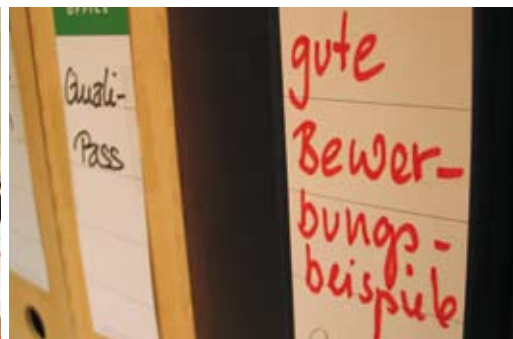 Quali-
Pass
gute
Bewer-
bungs-
beispiele